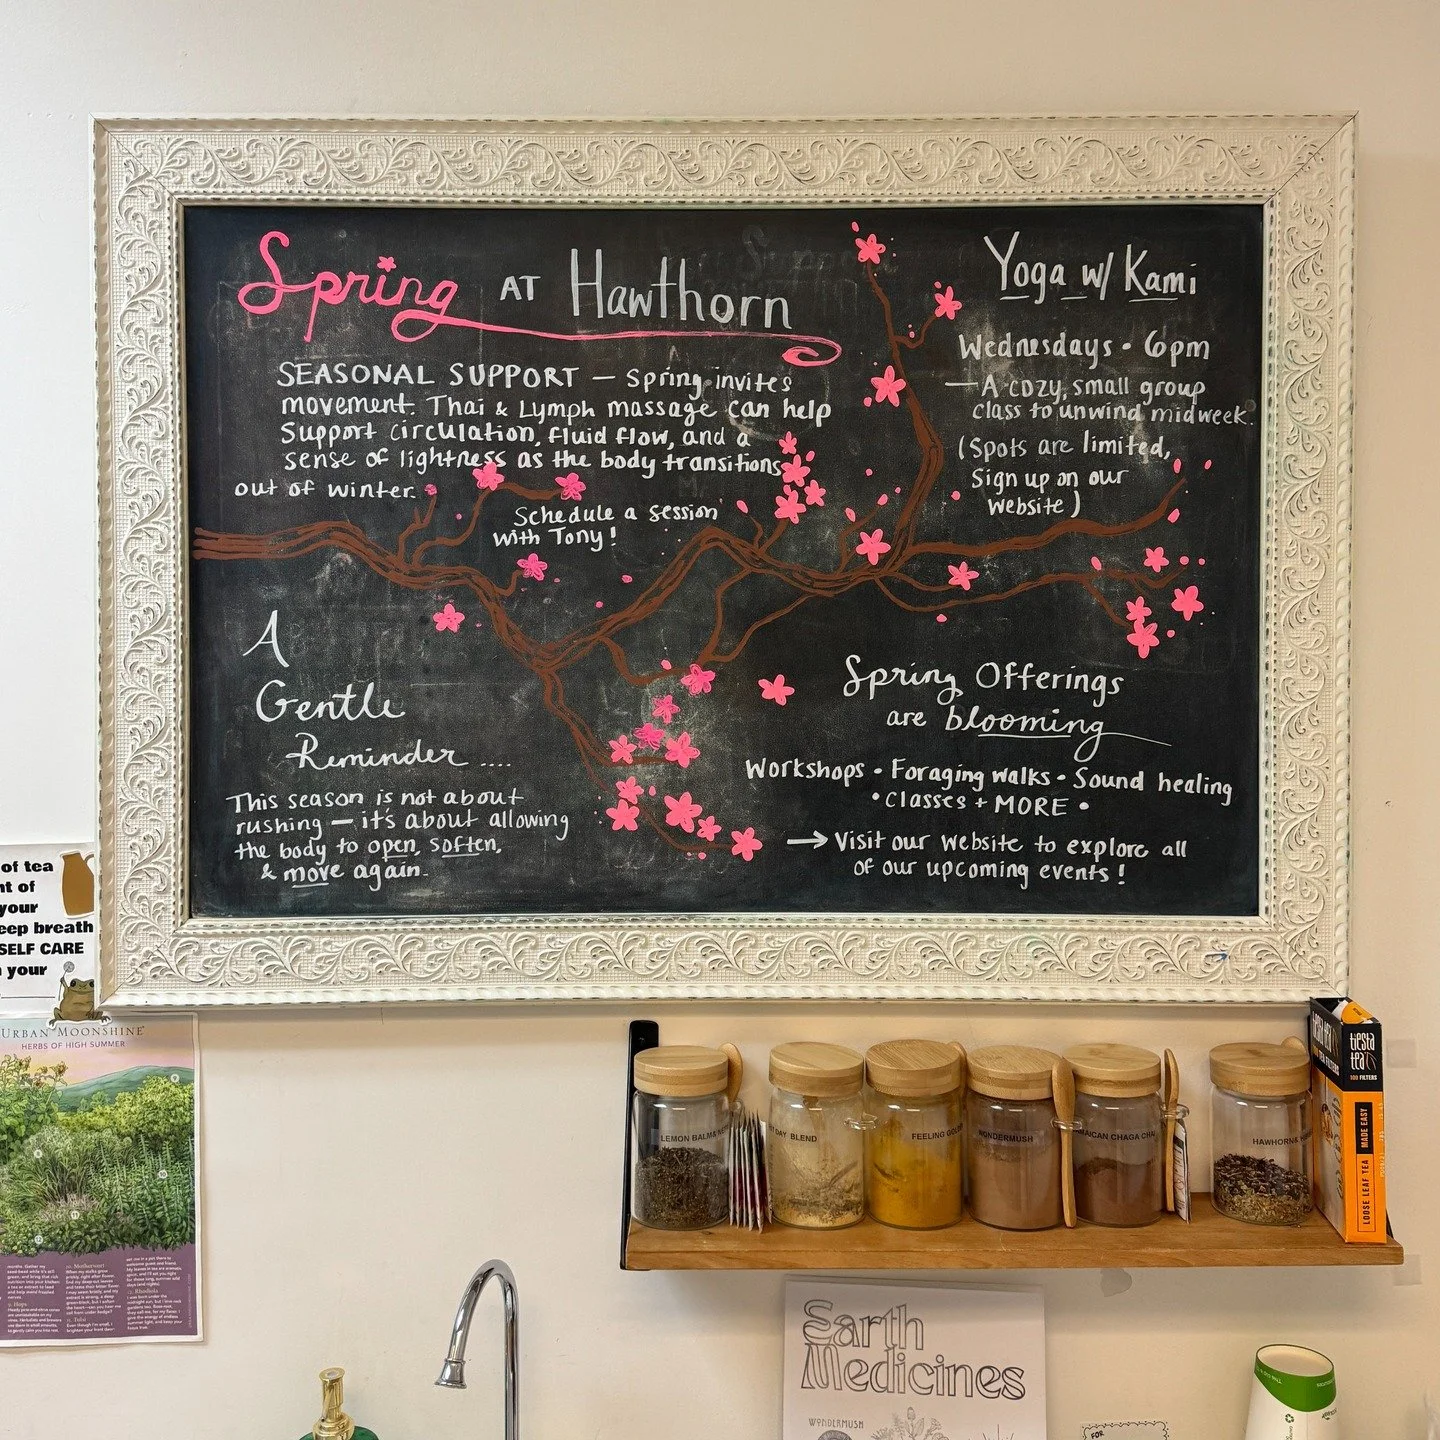 Spring AT Hawthorn
SEASONAL SUPPORT — Spring invites
movement. Thai & Lymph massage can help
Support circulation, fluid flow, and a
sense of lightness as the body transitions
out of winter.
Schedule a session
with Tony!
Yoga w/ Kami
Wednesdays • 6pm
— A cozy, small group
class to unwind midweek.
(Spots are limited,
Sign up on our
website)
A
Gentle
Reminder ....
This season is not about
rushing — it's about allowing
the body to open, soften,
& move again.
Spring Offerings
are blooming
Workshops • Foraging walks • Sound healing
• Classes + MORE •
→ Visit our website to explore all
of our upcoming events!
of tea
of
your
breath
SELF CARE
your
URBAN MOONSHINE
HERBS OF HIGH SUMMER
LEMON BALM
DAY BLEND
FEELING
WONDERMUSH
CHAGA
HAWTHORN
tiesta
tea
100 FILTERS
LOOSE LEAF TEA MADE EASY
Earth
Medicines
WONDERMUSH
FOR